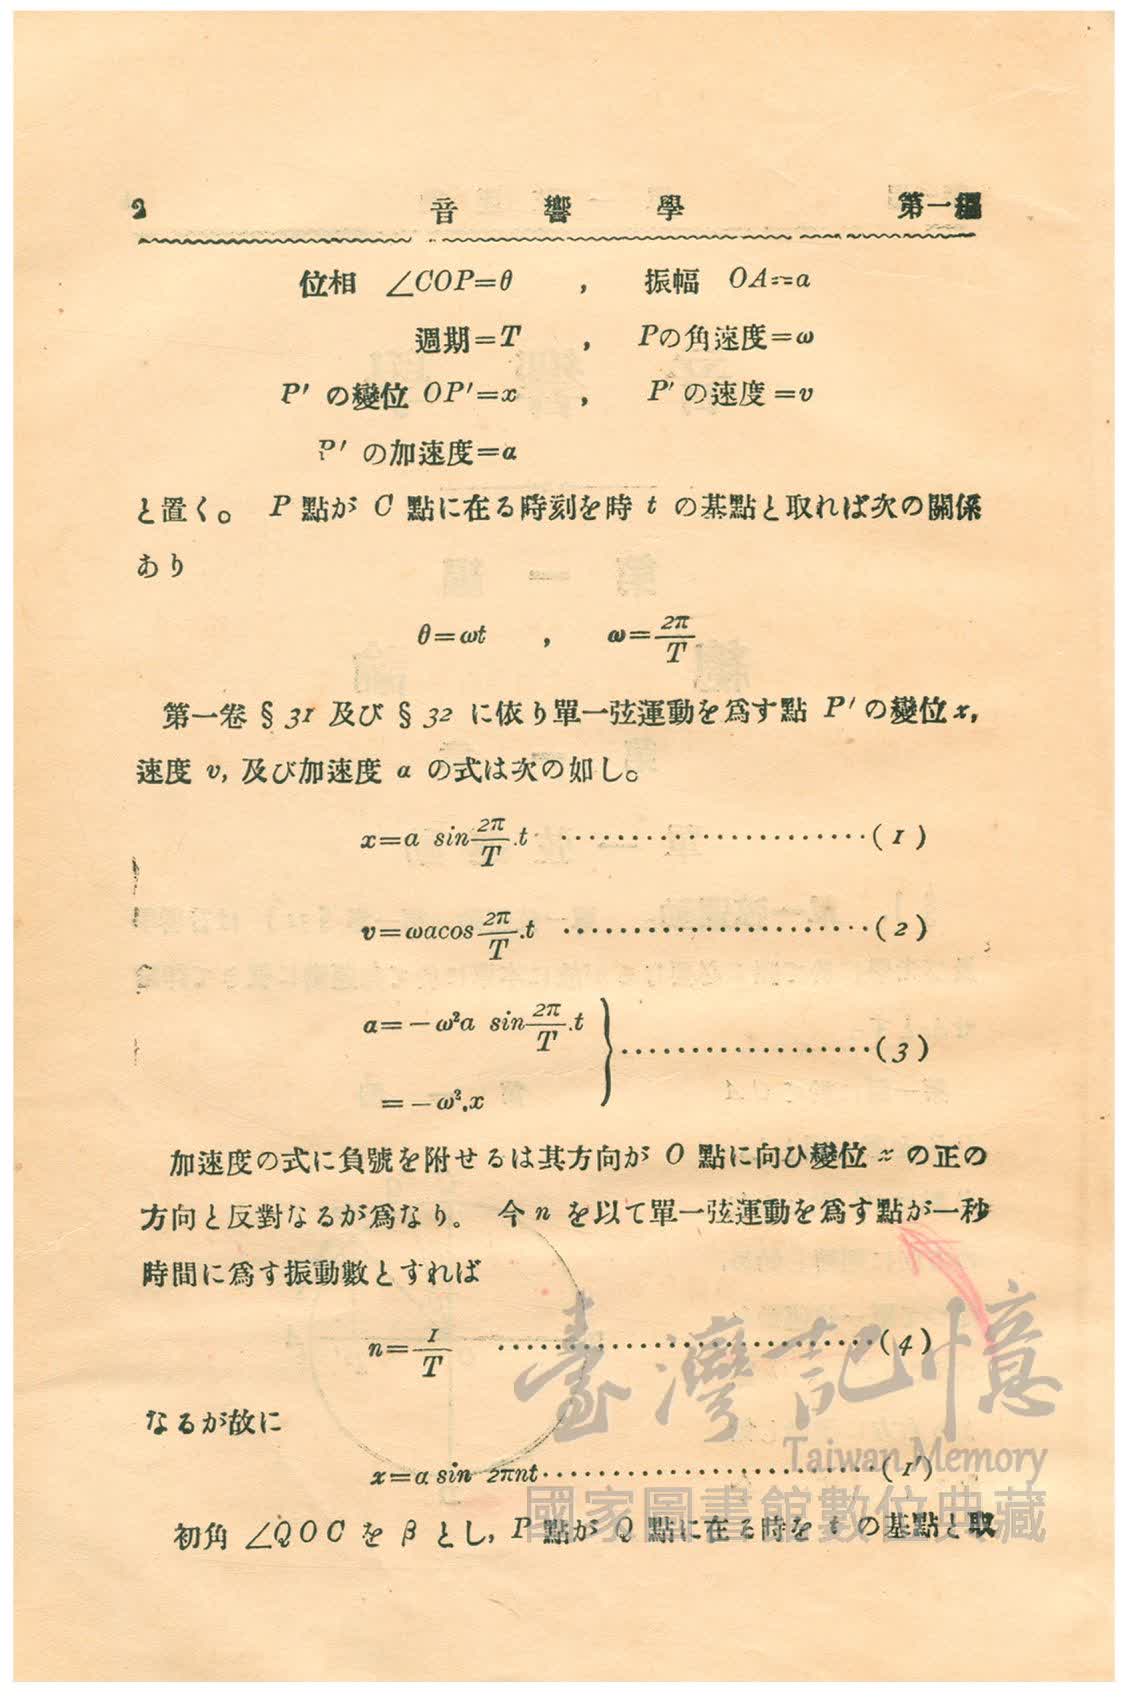 2 音響學 第一編
位相 ∠COP=θ , 振幅 OA=a
週期=T , Pの角速度=ω
P′ の變位 OP′=x , P′ の速度=v
P′ の加速度=α
と置く。 P 點が C 點に在る時刻を時 t の基點と取れば次の關係
あり
θ=ωt , ω=2π/T
第一卷 § 31 及び § 32 に依り單一弦運動を爲す點 P′ の變位 x,
速度 v, 及び加速度 α の式は次の如し。
x=a sin 2π/T .t ……………………(1)
v=ωacos 2π/T .t ……………………(2)
α=−ω²a sin 2π/T .t
=−ω².x } ………………(3)
加速度の式に負號を附せるは其方向が O 點に向ひ變位 x の正の
方向と反對なるが爲なり。 今 n を以て單一弦運動を爲す點が一秒
時間に爲す振動數とすれば
n=1/T ……………………(4)
なるが故に
x=a sin 2πnt……………………(1′)
初角 ∠QOC を β とし, P 點が Q 點に在る時を t の基點と取
臺灣記憶
Taiwan Memory
國家圖書館數位典藏